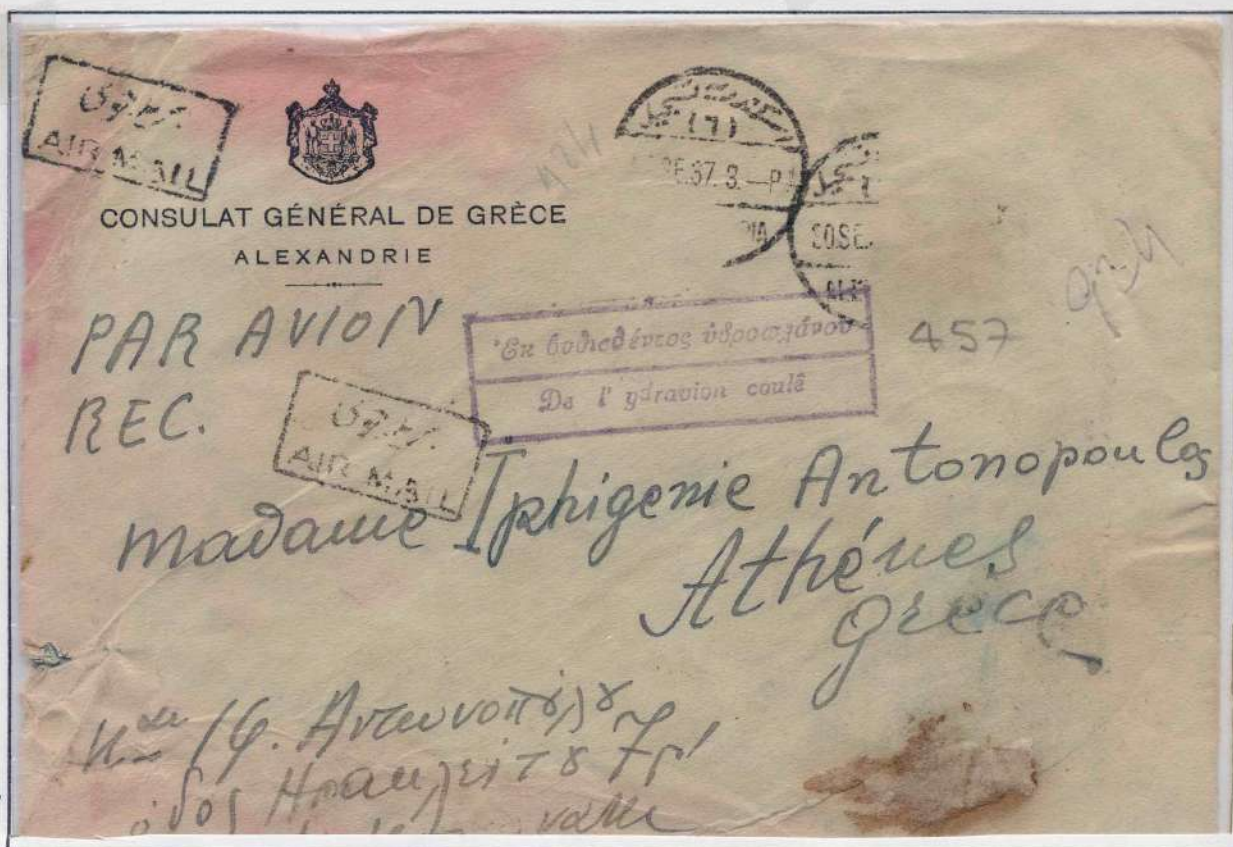 بريد جوى
AIR MAIL
CONSULAT GÉNÉRAL DE GRÈCE
ALEXANDRIE
(٦)
SE.37.3.-P
30.SE.
PAR AVION
REC.
924
457
Ἐκ βυθισθέντος ὑδροπλάνου
De l' ydravion coulê
بريد جوى
AIR MAIL
Madame Iphigenie Antonopoulos
Athénes
Grèce
Ἰφ. Ἀντωνοπούλου
ὁδὸς Ἡρακλείτου